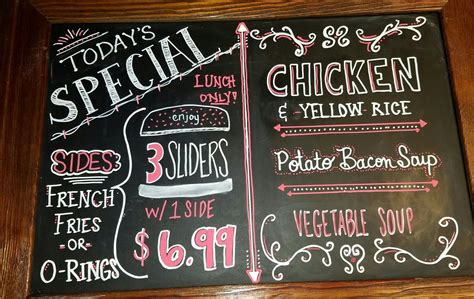 TODAY'S
SPECIAL
LUNCH
ONLY!
enjoy
3 SLIDERS
W/ 1 SIDE
$6.99
SIDES:
FRENCH
FRIES
-OR-
O-RINGS
CHICKEN
& YELLOW RICE
Potato Bacon Soup
VEGETABLE SOUP